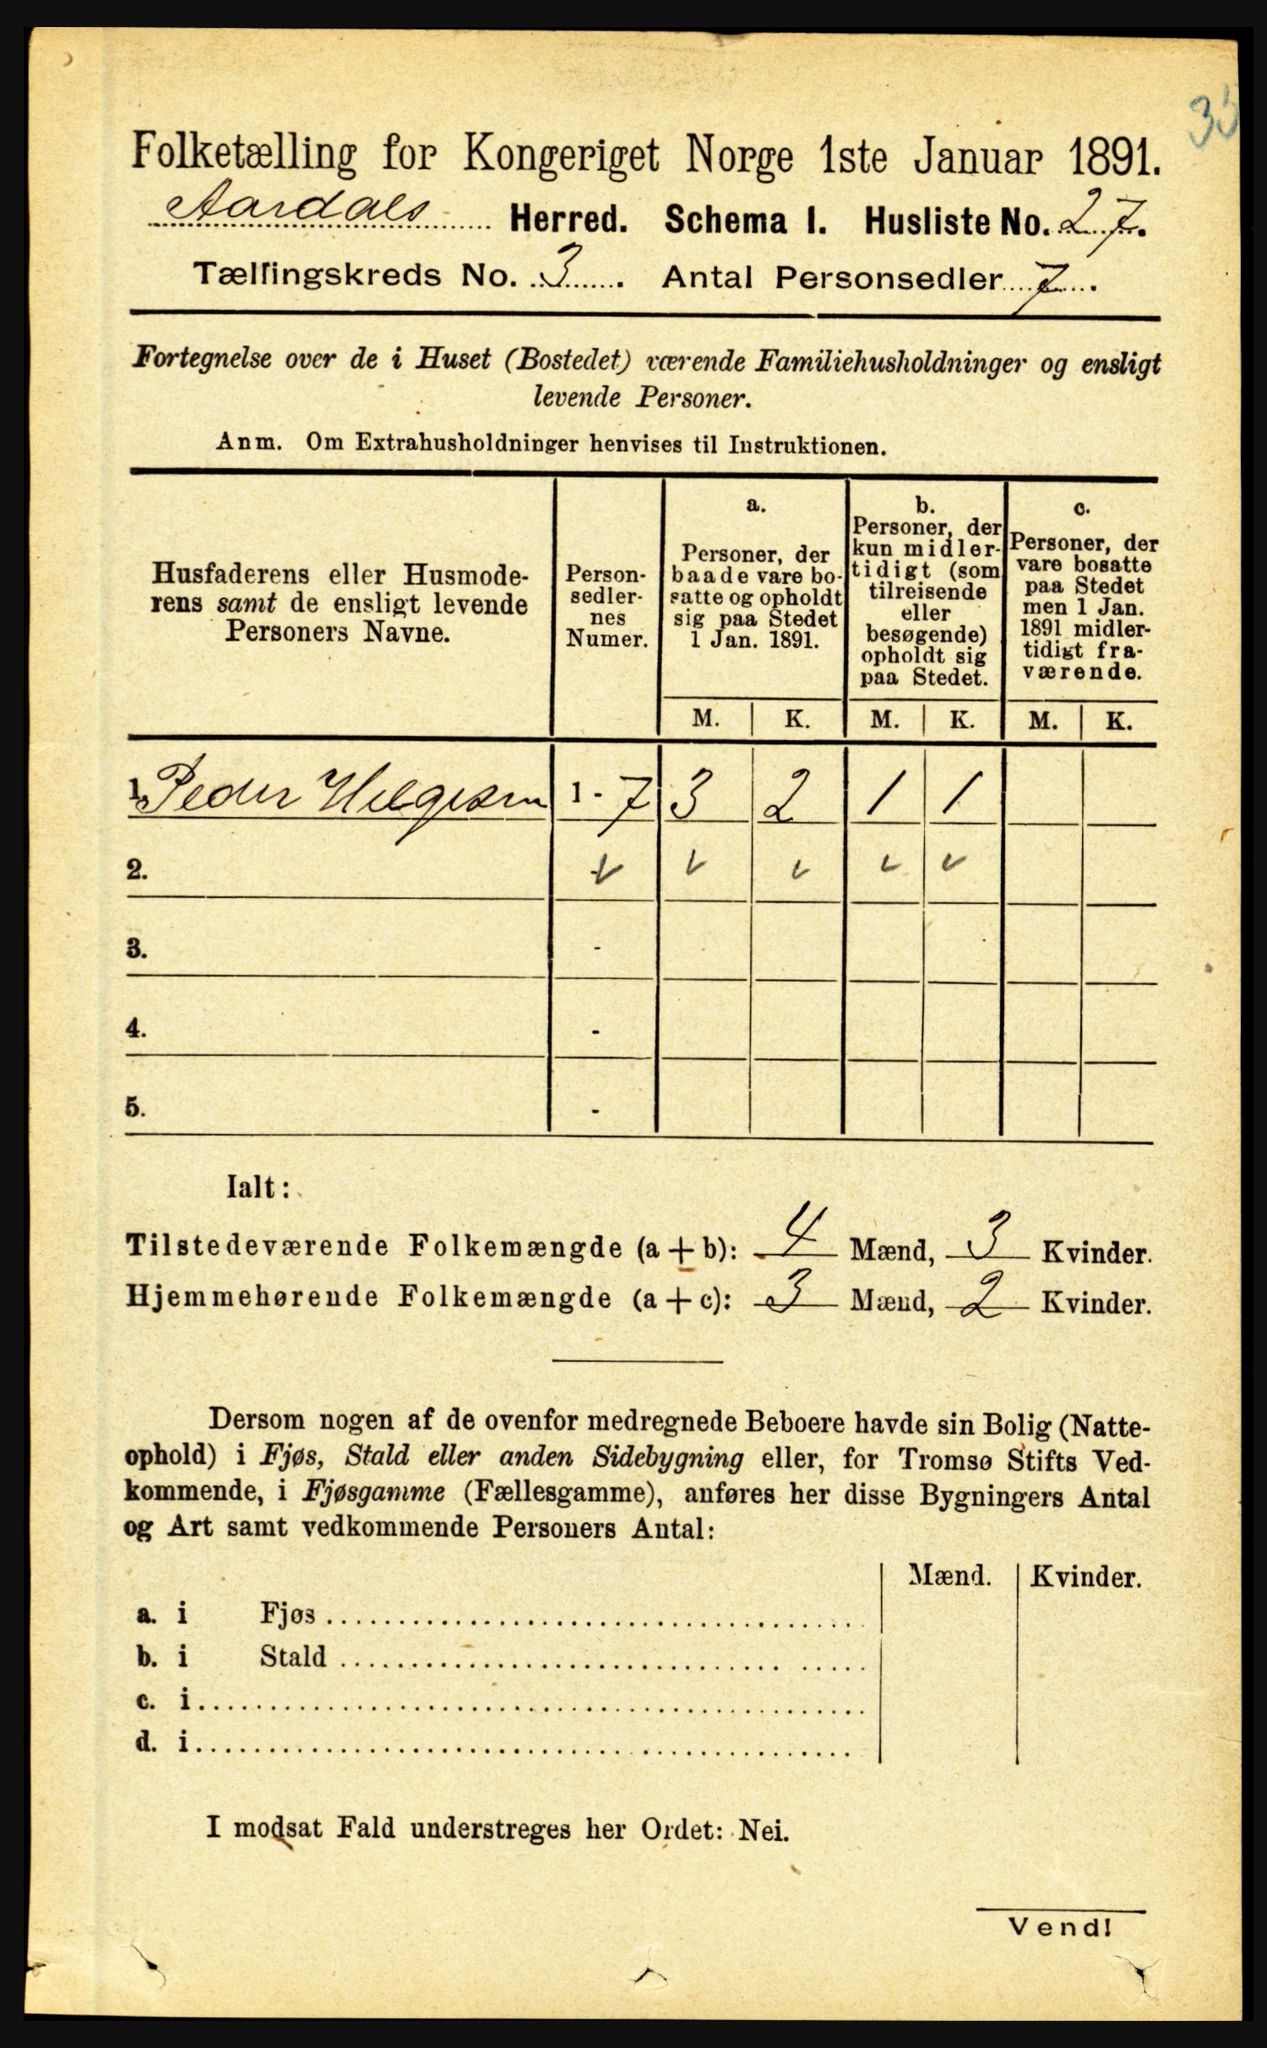 Folketælling for Kongeriget Norge 1ste Januar 1891.
Aardals Herred. Schema I. Husliste No. 27.
Tællingskreds No. 3. Antal Personsedler 7.
Fortegnelse over de i Huset (Bostedet) værende Familiehusholdninger og ensligt
levende Personer.
Anm. Om Extrahusholdninger henvises til Instruktionen.
Husfaderens eller Husmode-
rens samt de ensligt levende
Personers Navne.
Person-
sedler-
nes
Numer.
a.
Personer, der
baade vare bo-
satte og opholdt
sig paa Stedet
1 Jan. 1891.
b.
Personer, der
kun midler-
tidigt (som
tilreisende
eller
besøgende)
opholdt sig
paa Stedet.
c.
Personer, der
vare bosatte
paa Stedet
men 1 Jan.
1891 midler-
tidigt fra-
værende.
M. K. M. K. M. K.
1. Peder Helgesen 1 - 7 3 2 1 1
2. -
3. -
4. -
5. -
Ialt:
Tilstedeværende Folkemængde (a + b): 4 Mænd, 3 Kvinder.
Hjemmehørende Folkemængde (a + c): 3 Mænd, 2 Kvinder.
Dersom nogen af de ovenfor medregnede Beboere havde sin Bolig (Natte-
ophold) i Fjøs, Stald eller anden Sidebygning eller, for Tromsø Stifts Ved-
kommende, i Fjøsgamme (Fællesgamme), anføres her disse Bygningers Antal
og Art samt vedkommende Personers Antal:
Mænd. Kvinder.
a. i Fjøs
b. i Stald
c. i
d. i
I modsat Fald understreges her Ordet: Nei.
Vend!